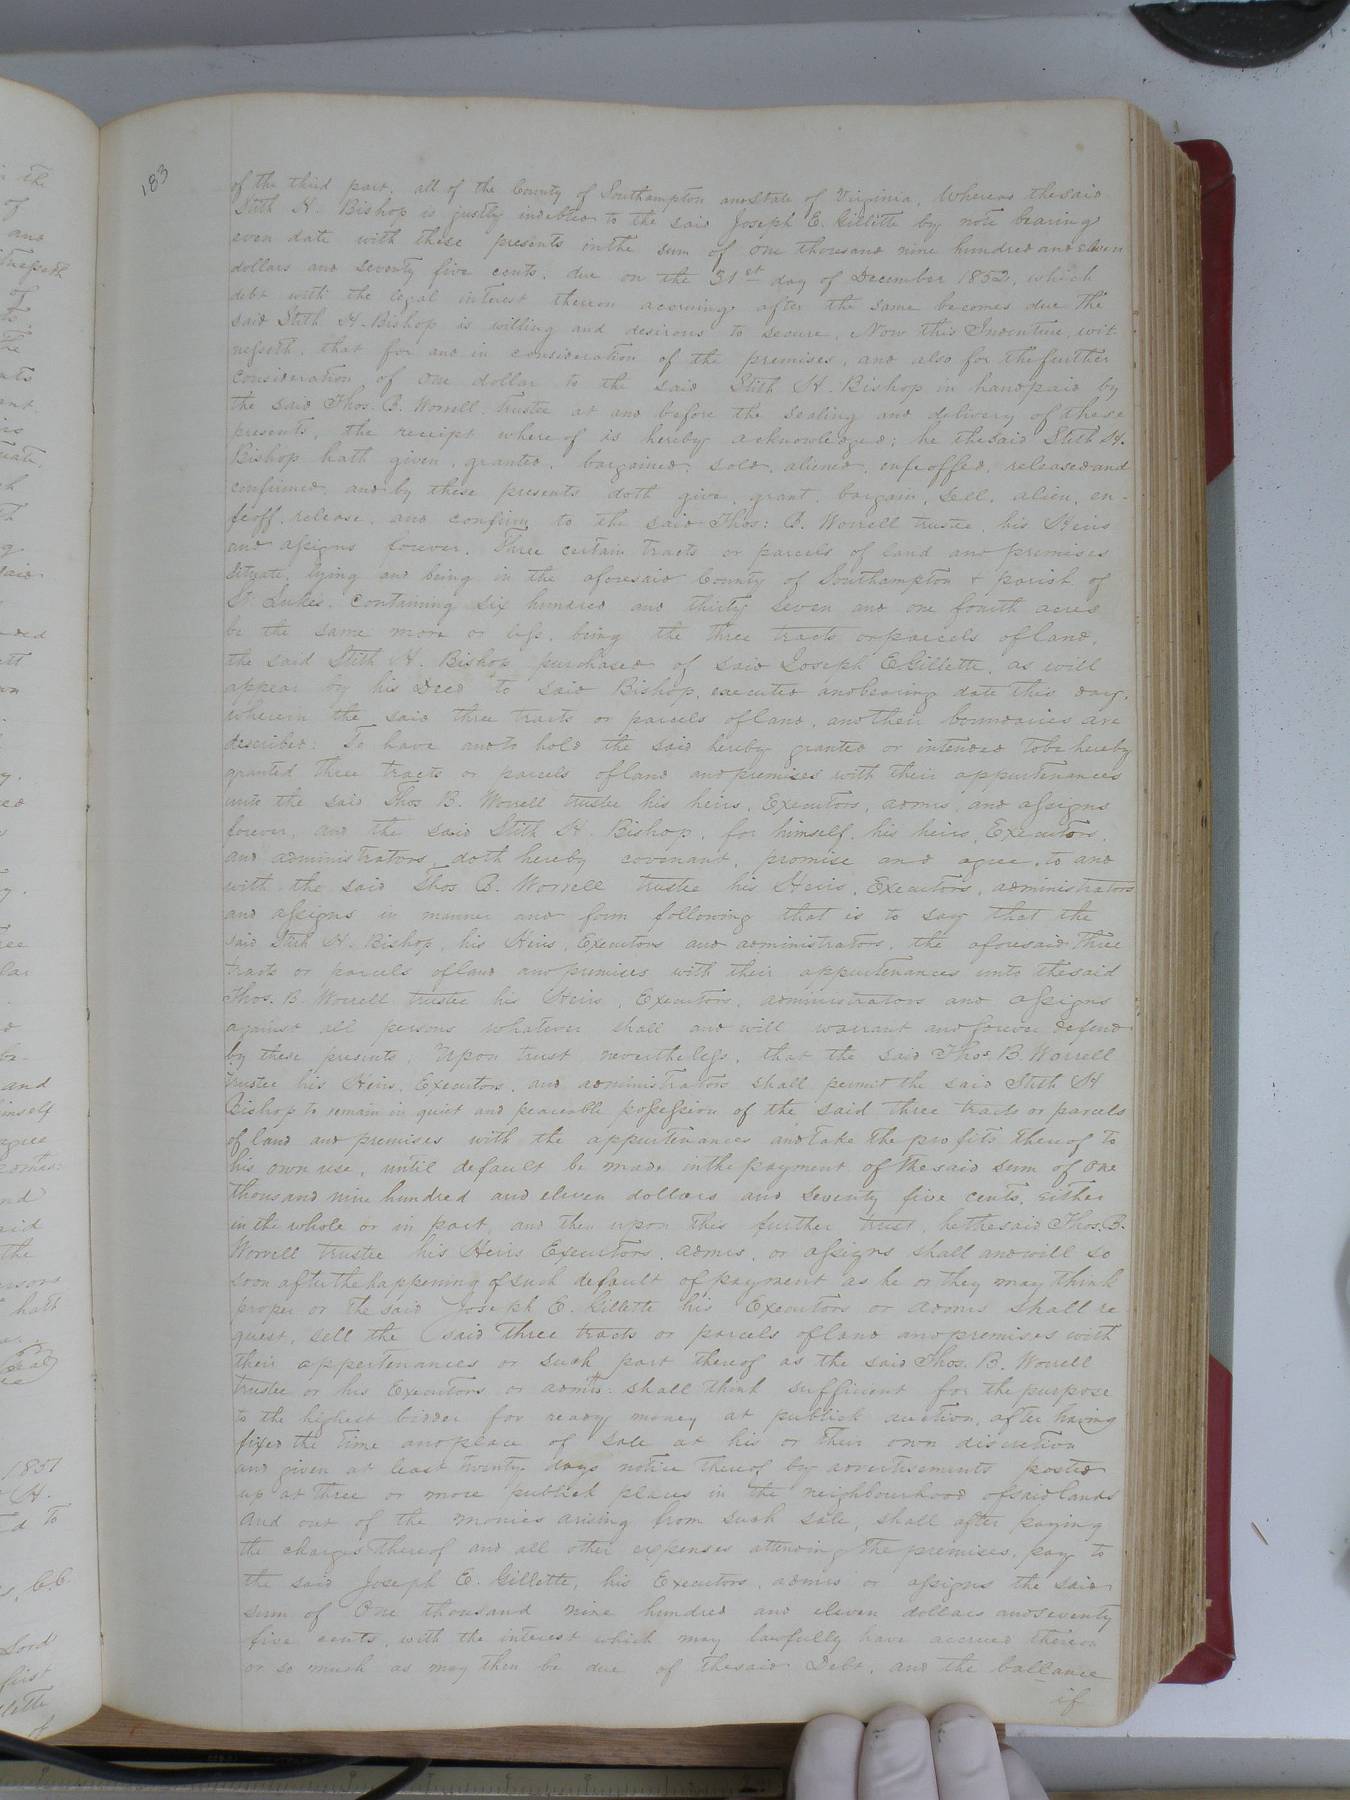 183
of the third part, all of the County of Southampton and State of Virginia, Whereas the said
Stith H. Bishop is justly indebted to the said Joseph E. Gillette by note bearing
even date with these presents in the sum of one thousand nine hundred and eleven
dollars and seventy five cents, due on the 31st day of December 1852, which
debt with the legal interest thereon accruing after the same becomes due the
said Stith H. Bishop is willing and desirous to secure, Now this Indenture, wit
nesseth, that for and in consideration of the premises, and also for the further
consideration of one dollar to the said Stith H. Bishop in hand paid by
the said Thos. B. Worrell, trustee at and before the sealing and delivery of these
presents, the receipt whereof is hereby acknowledged; he the said Stith H.
Bishop hath given, granted, bargained, sold, aliened, enfeoffed, released and
confirmed, and by these presents doth give, grant, bargain, sell, alien, en-
feoff, release, and confirm to the said Thos: B. Worrell trustee, his Heirs
and assigns forever, Three certain tracts or parcels of land and premises
situate, lying and being in the aforesaid County of Southampton & parish of
St. Luke's, containing six hundred and thirty seven and one fourth acres
be the same more or less, being the three tracts or parcels of land,
the said Stith H. Bishop purchased of said Joseph E Gillette, as will
appear by his Deed to said Bishop, executed and bearing date this day,
wherein the said three tracts or parcels of land, and their boundaries are
described: To have and to hold the said hereby granted or intended to be hereby
granted three tracts or parcels of land and premises with their appurtenances
unto the said Thos B. Worrell trustee his heirs, Executors, admrs, and assigns
forever, and the said Stith H. Bishop, for himself, his heirs, Executors,
and administrators, doth hereby covenant, promise and agree, to and
with the said Thos B. Worrell trustee his Heirs, Executors, administrators
and assigns in manner and form following that is to say that the
said Stith H. Bishop, his Heirs, Executors and administrators, the aforesaid three
tracts or parcels of land and premises with their appurtenances unto the said
Thos. B. Worrell trustee his Heirs, Executors, administrators and assigns
against all persons whatever shall and will warrant and forever defend
by these presents; Upon trust nevertheless, that the said Thos. B. Worrell
trustee his Heirs, Executors, and administrators shall permit the said Stith H
Bishop to remain in quiet and peaceable possession of the said three tracts or parcels
of land and premises with the appurtenances and take the profits thereof to
his own use, until default be made in the payment of the said sum of one
thousand nine hundred and eleven dollars and seventy five cents, either
in the whole or in part, and then upon this further trust, he the said Thos. B.
Worrell trustee his Heirs Executors, admrs, or assigns shall and will so
soon after the happening of such default of payment as he or they may think
proper or the said Joseph E. Gillette his Executors or admrs shall re
quest, sell the said three tracts or parcels of land and premises with
their appertenances or such part thereof as the said Thos. B. Worrell
trustee or his Executors or admrs. shall think sufficient for the purpose
to the highest bidder for ready money at publick auction, after having
fixed the time and place of sale at his or their own discretion
and given at least twenty days notice thereof by advertisements posted
up at three or more publick places in the neighbourhood of said lands
And out of the monies arising from such sale, shall after paying
the charges thereof and all other expenses attending the premises, pay to
the said Joseph E. Gillette, his Executors, admrs or assigns the said
sum of One thousand nine hundred and eleven dollars and seventy
five cents, with the interest which may lawfully have accrued thereon
or so much as may then be due of the said Debt, and the ballance
if